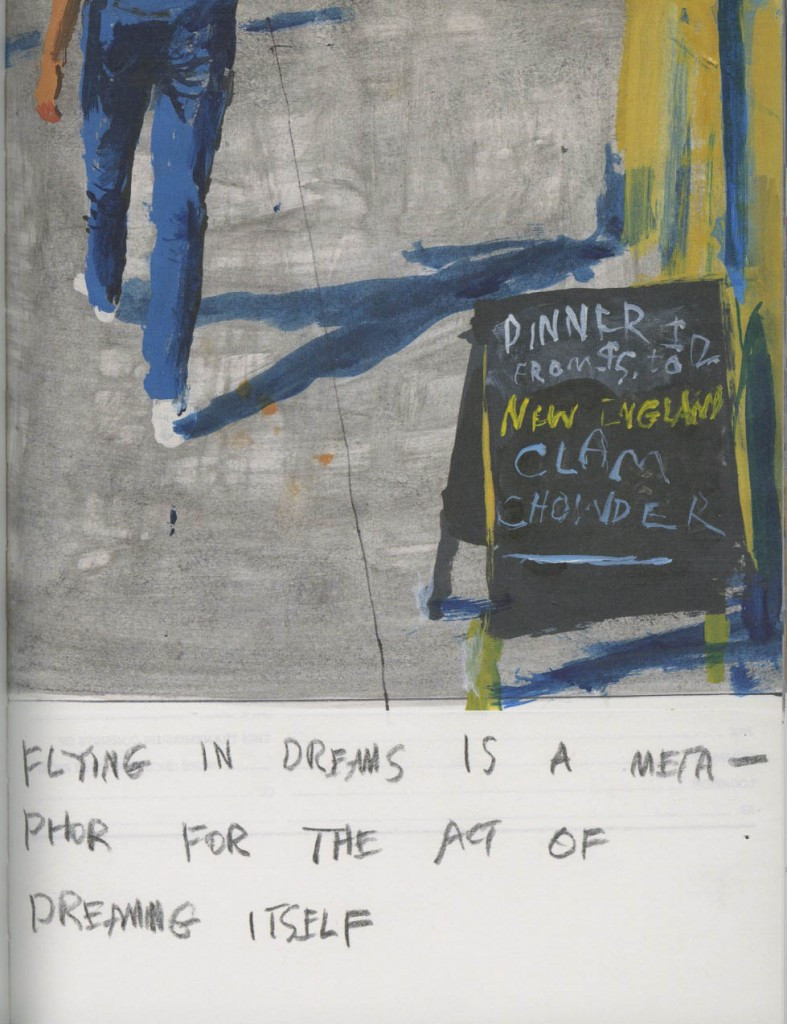 DINNER $
FROM $5. to 12
NEW ENGLAND
CLAM
CHOWDER
FLYING IN DREAMS IS A META-
PHOR FOR THE ACT OF
DREAMING ITSELF